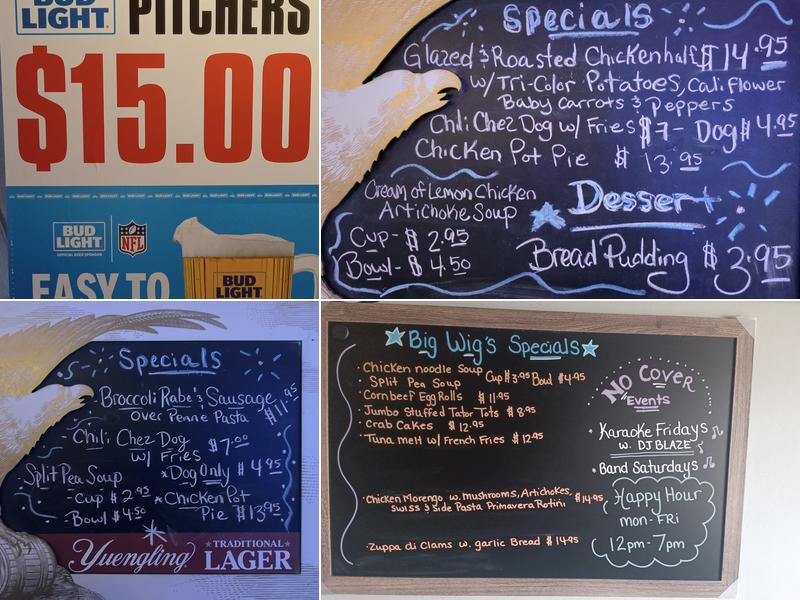 BUD
LIGHT
PITCHERS
$15.00
BUD
LIGHT
NFL
OFFICIAL BEER SPONSOR
EASY TO
BUD
LIGHT
Specials
Glazed & Roasted Chicken half $14.95
w/Tri-Color Potatoes, Califlower
Baby Carrots & Peppers
Chili Chez Dog w/ Fries $7- Dog $4.95
Chicken Pot Pie $13.95
Cream of Lemon Chicken
Artichoke Soup
Cup- $2.95
Bowl- $4.50
Dessert
Bread Pudding $3.95
Specials
Broccoli Rabe & Sausage
over Penne Pasta $11.95
Chili Chez Dog
w/ Fries $7.00
Split Pea Soup
-Cup $2.95
-Bowl $4.50
*Dog Only $4.95
*Chicken Pot
Pie $13.95
Yuengling
TRADITIONAL
LAGER
Big Wig's Specials
· Chicken noodle Soup
· Split Pea Soup Cup $3.95 Bowl $4.95
· Cornbeef Egg Rolls $11.95
· Jumbo Stuffed Tator Tots $8.95
· Crab Cakes $12.95
· Tuna melt w/ French Fries $12.95
· Chicken Morengo w. Mushrooms, Artichokes,
swiss & side Pasta Primavera Rotini $14.95
· Zuppa di Clams w. garlic Bread $14.95
NO Cover
Events
· Karaoke Fridays
w. DJ BLAZE
· Band Saturdays
Happy Hour
mon-FRi
12pm-7pm